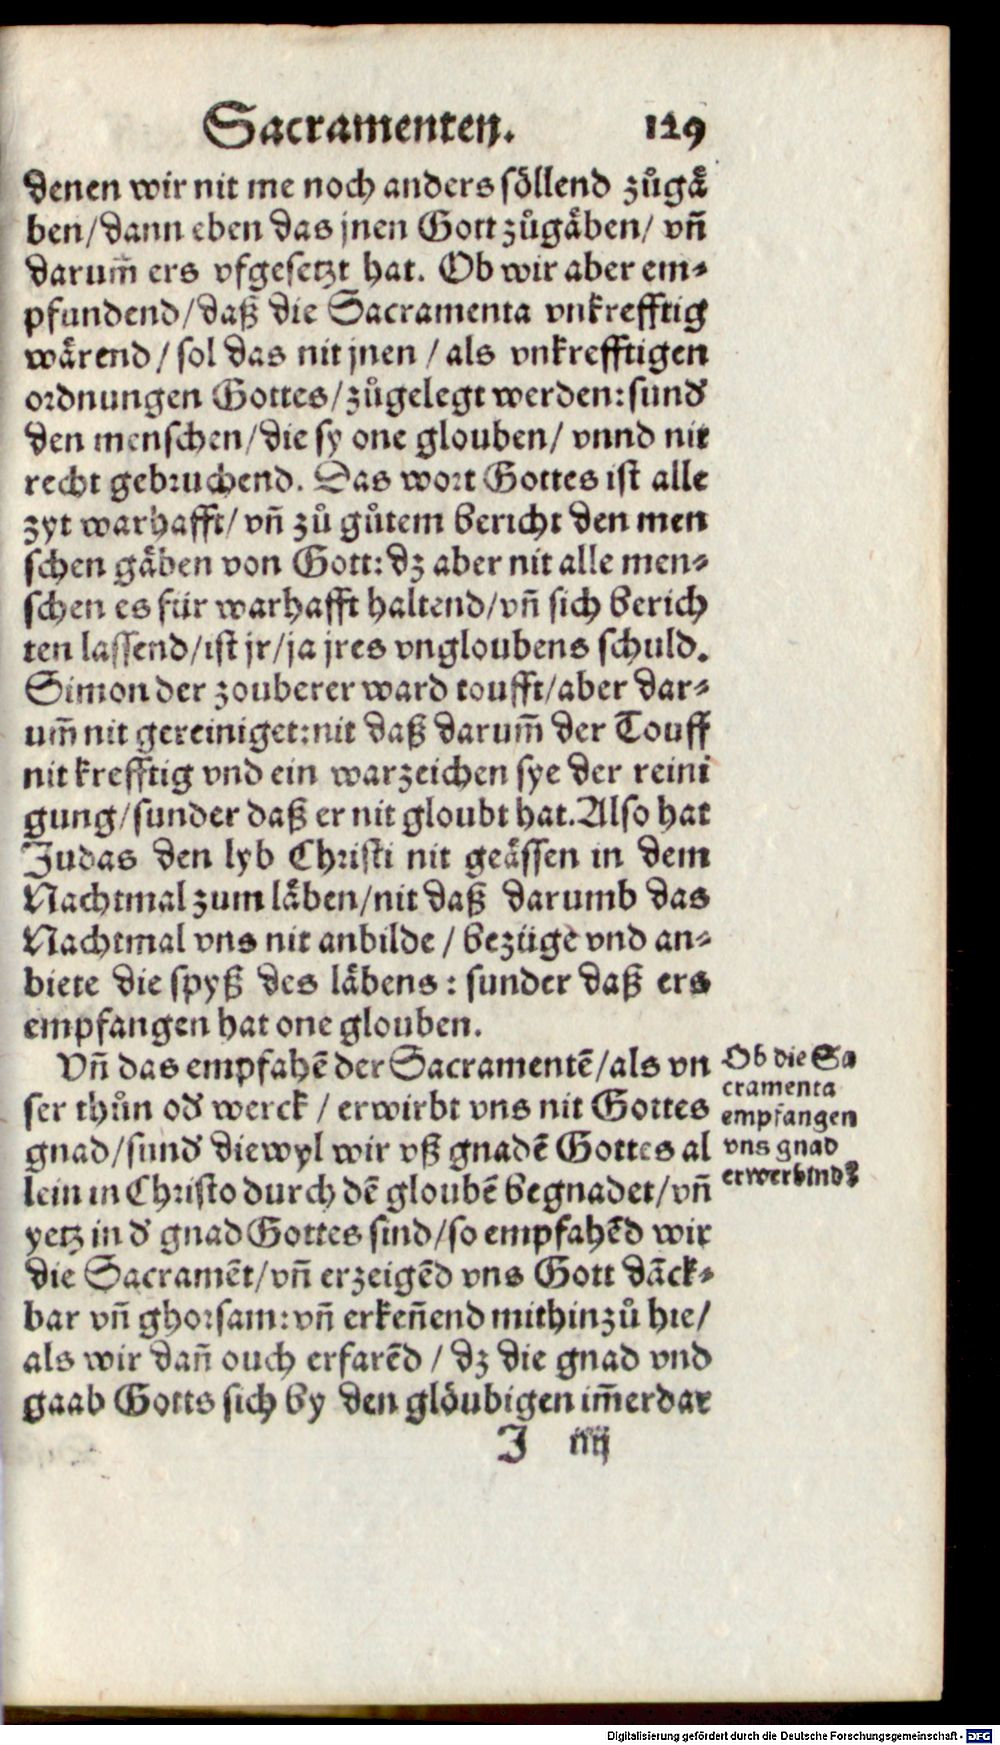 Sacramenten. 129
denen wir nit me noch anders söllend zůgaͤ
ben/dann eben das jnen Gott zůgaͤben/ vñ
darum̄ ers vfgesetzt hat. Ob wir aber em⸗
pfundend/daß die Sacramenta vnkrefftig
waͤrend / sol das nit jnen / als vnkrefftigen
ordnungen Gottes/zůgelegt werden:sund̕
den menschen/die sy one glouben/ vnnd nit
recht gebruchend. Das wort Gottes ist alle
zyt warhafft/ vñ zů gůtem bericht den men
schen gaͤben von Gott: dz aber nit alle men⸗
schen es für warhafft haltend/vñ sich berich
ten lassend/ist jr/ja jres vngloubens schuld.
Simon der zouberer ward toufft/aber dar⸗
um̄ nit gereiniget:nit daß darum̄ der Touff
nit krefftig vnd ein warzeichen sye der reini
gung/sunder daß er nit gloubt hat.Also hat
Judas den lyb Christi nit geaͤssen in dem
Nachtmal zum laͤben/nit daß darumb das
Nachtmal vns nit anbilde / bezüge vnd an⸗
biete die spyß des laͤbens : sunder daß ers
empfangen hat one glouben.
Vñ das empfahē der Sacramentē/als vn
ser thůn od̕ werck / erwirbt vns nit Gottes
gnad/sund̕ diewyl wir vß gnadē Gottes al
lein in Christo durch dē gloubē begnadet/vñ
yetz in d̕ gnad Gottes sind/so empfahēd wir
die Sacramēt/vñ erzeigēd vns Gott dāck⸗
bar vñ ghorsam:vñ erkeñend mithinzů hie/
als wir dañ ouch erfarēd / dz die gnad vnd
gaab Gotts sich by den glöubigen im̄erdar
J iiij
Ob die Sa
cramenta
empfangen
vns gnad
erwerbind?
Digitalisierung gefördert durch die Deutsche Forschungsgemeinschaft - DFG